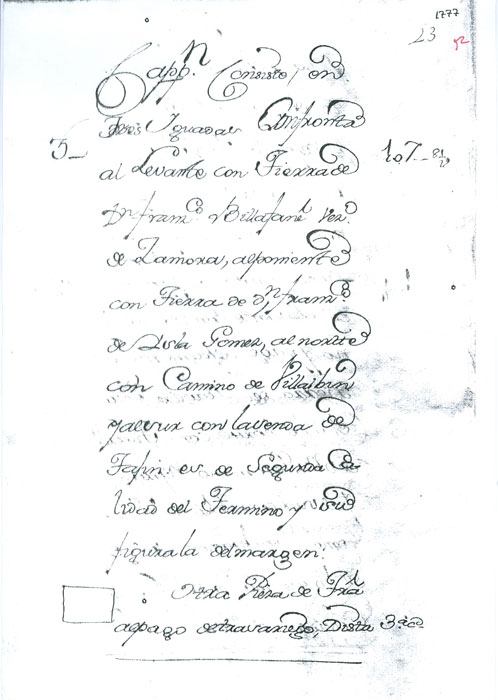 1777
23
52
Capp.n Consisto, en
tres Iguadas Confronta
3_ al Levante con Tierra de 107_
Dn fram.co Billafañe Vez.o
de Zamora, alponiente
con Tierra de dn, fram.co
de Isla Gomez, al norte
con Camino de Villalbin
yalsur con lasenda de
Tafin es de Segunda Ca
lidad del Termino y su
figura la delmargen.
Otra Pieza de Tra
apago detrasariego, Dista 3